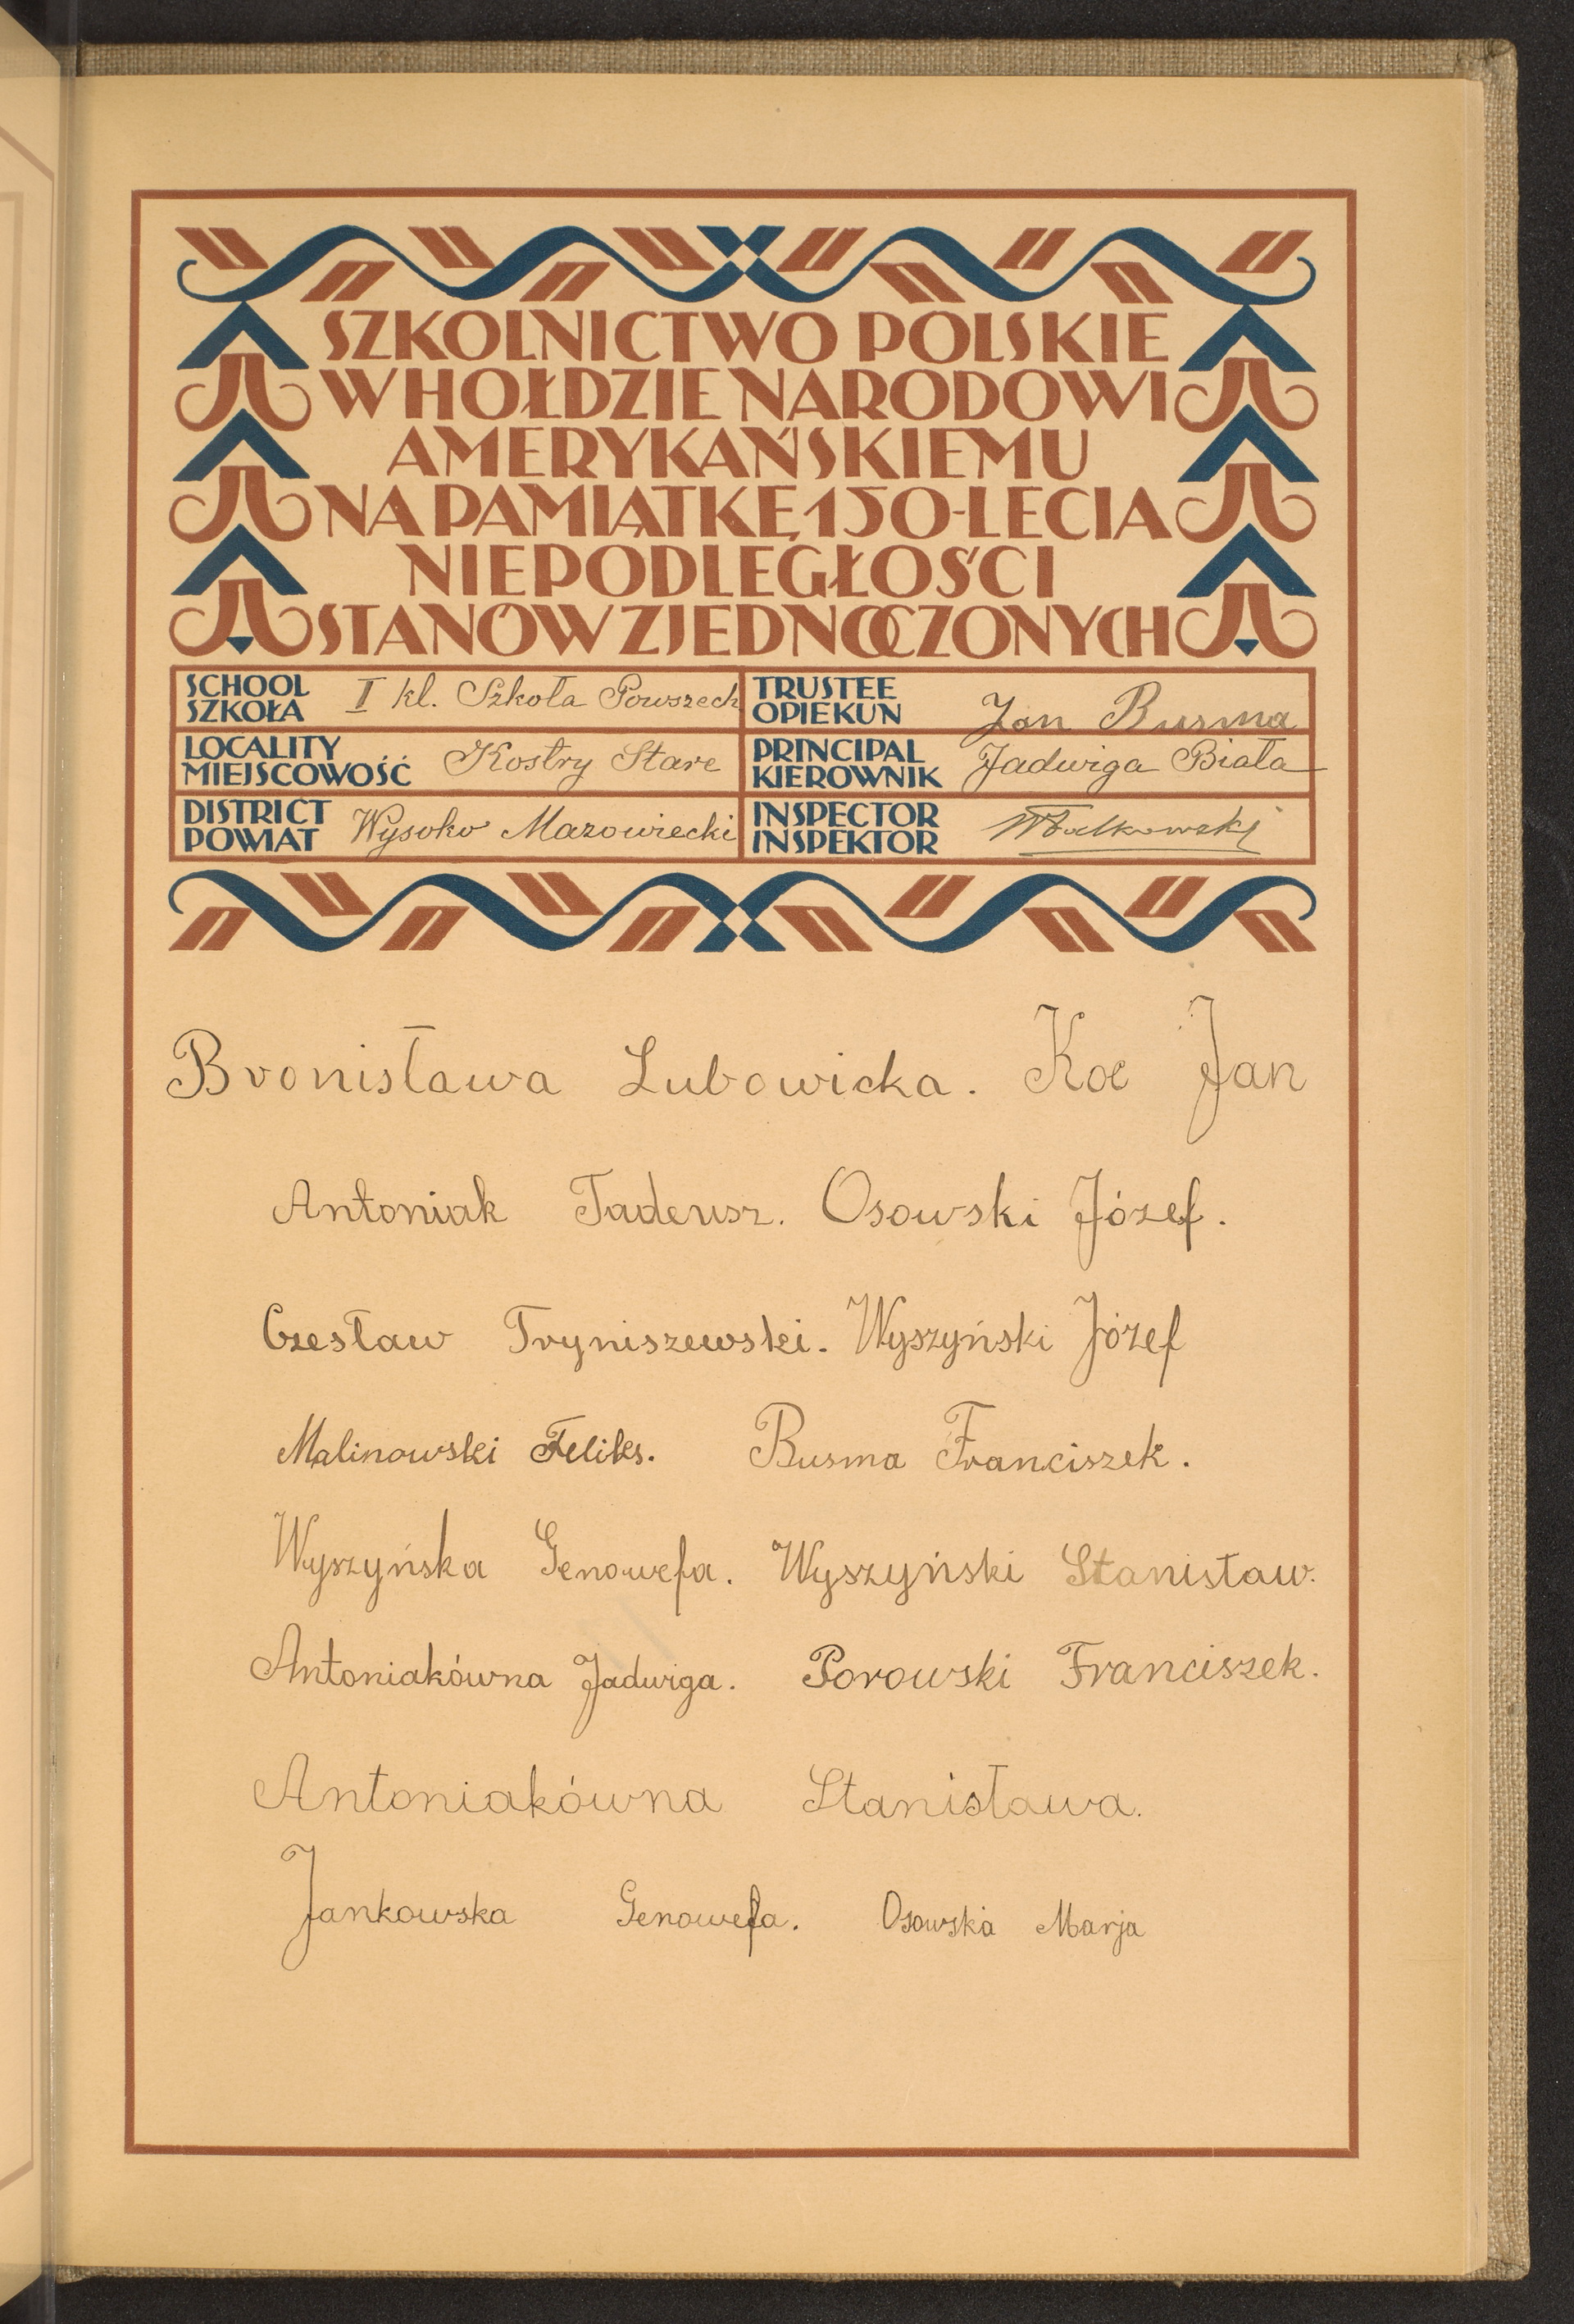 SZKOLNICTWO POLSKIE
W HOŁDZIE NARODOWI
AMERYKAŃSKIEMU
NA PAMIĄTKĘ 150-LECIA
NIEPODLEGŁOŚCI
STANÓW ZJEDNOCZONYCH
SCHOOL
SZKOŁA
I kl. Szkoła Powszech
TRUSTEE
OPIEKUN
Jan Busma
LOCALITY
MIEJSCOWOŚĆ
Kostry Stare
PRINCIPAL
KIEROWNIK
Jadwiga Biała
DISTRICT
POWIAT
Wysoko Mazowiecki
INSPECTOR
INSPEKTOR
Bronisława Lubowicka. Koc Jan
Antoniak Tadeusz. Osowski Józef.
Czesław Tryniszewski. Wyszyński Józef
Malinowski Feliks. Busma Franciszek.
Wyszyńska Genowefa. Wyszyński Stanisław.
Antoniakówna Jadwiga. Porowski Franciszek.
Antoniakówna Stanisława.
Jankowska Genowefa. Osowska Marja